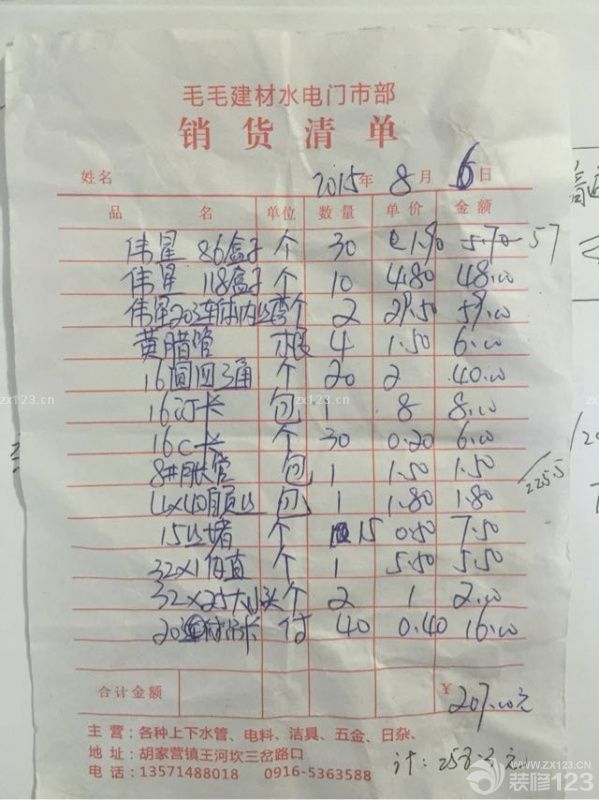 毛毛建材水电门市部
销货清单
姓名 2015年 8月 6日
品名 单位 数量 单价 金额
伟星 86盒子 个 30 1.90 5.70 57
伟星 118盒子 个 10 4.80 48.00
伟星20 内丝弯 个 2 29.50 59.00
黄腊管 根 4 1.50 6.00
16圆四通 个 20 2 40.00
16 卡 包 1 8 8.00
16c卡 个 30 0.20 6.00
8#胀管 包 1 1.50 1.50
4×40 丝 包 1 1.80 1.80
15丝堵 个 15 0.50 7.50
32×1 直 个 1 5.50 5.50
32×25大小头 个 2 1 2.00
20 卡 付 40 0.40 16.00
225.5
合计金额 ¥207.00元
主 营：各种上下水管、电料、洁具、五金、日杂、
地 址：胡家营镇王河坎三岔路口
电 话：13571488018 0916-5363588
计：258.3元
zx123.cn
WWW.ZX123.CN
装修123